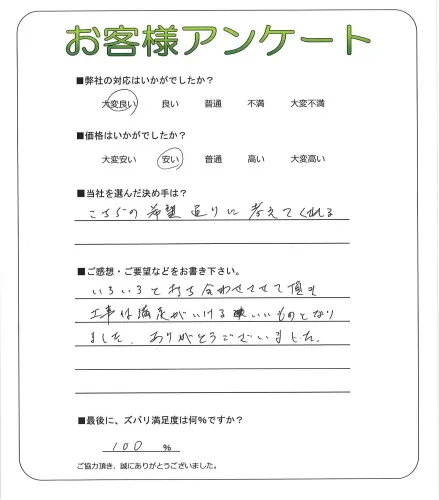 お客様アンケート
■弊社の対応はいかがでしたか？
大変良い 良い 普通 不満 大変不満
■価格はいかがでしたか？
大変安い 安い 普通 高い 大変高い
■当社を選んだ決め手は？
こちらの希望通りに考えてくれる
■ご感想・ご要望などをお書き下さい。
いろいろと打ち合わせさせて頂き
工事は満足がいける いいものとなり
ました。ありがとうございました。
■最後に、ズバリ満足度は何%ですか？
100 %
ご協力頂き、誠にありがとうございました。